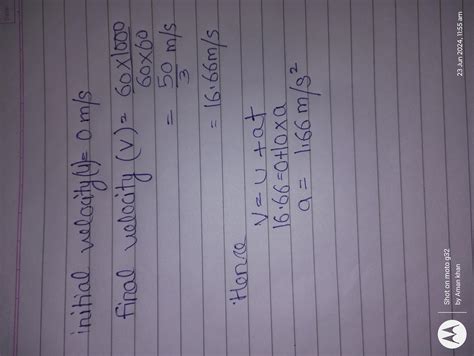 initial velocity(u)= 0 m/s
final velocity (v)= 60x1000
60x60
= 50 m/s
3
= 16.66m/s
Hence
v = u + at
16.66=0+10xa
a = 1.66 m/s²
Shot on moto g32
by Aman khan
23 Jun 2024, 11:55 am